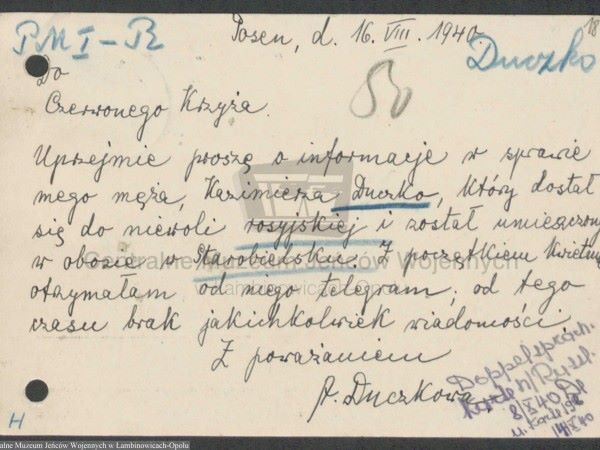 18
PM I - R
Posen, d. 16. VIII. 1940
Duczko
Do
Czerwonego Krzyża.
50
Uprzejmie proszę o informacje w sprawie
mego męża, Kazimierza Duczko, który dostał
się do niewoli rosyjskiej i został umieszczony
w obozie w Starobielsku. Z początkiem Kwietnia
otrzymałam od niego telegram; od tego
czasu brak jakichkolwiek wiadomości.
Z poważaniem
A. Duczkowa
H
Centralne Muzeum Jeńców Wojennych
Łambinowice-Opole
alne Muzeum Jeńców Wojennych w Łambinowicach-Opolu